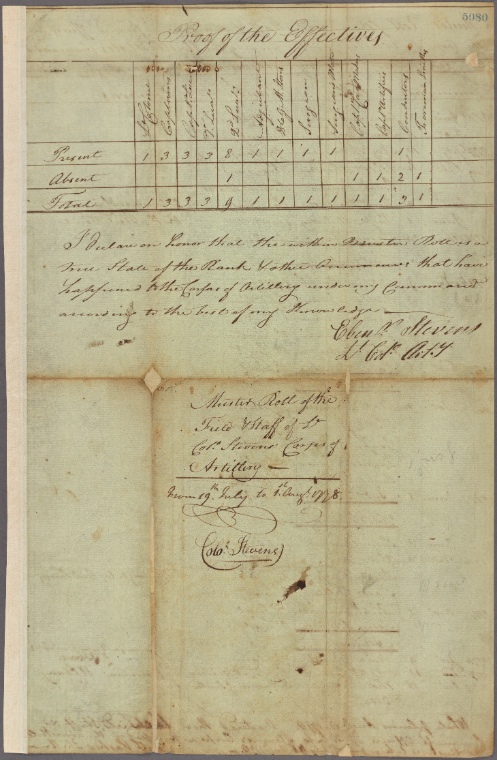 5980
Proof of the Effectives
Lt Colonel Captains Capt Lieuts 1st Lieuts 2d Lieuts Adjutant Qr Mr Surgeon Surgeons Mate Conductors
Present 1 3 3 3 8 1 1 1 1 1
Absent 1 1 1 2 1
Total 1 3 3 3 9 1 1 1 1 1 1 3 1
I declare on honor that the within Roll is a
true State of the Rank & other that have
happened to the Corps of Artillery under my Command
according to the best of my Knowledge —
Ebenr Stevens
Lt Col. Arty
Muster Roll of the
Field & Staff of Lt
Colo. Stevens Corps of
Artillery —
from 19th July to 1st Augt 1778
Colo. Stevens